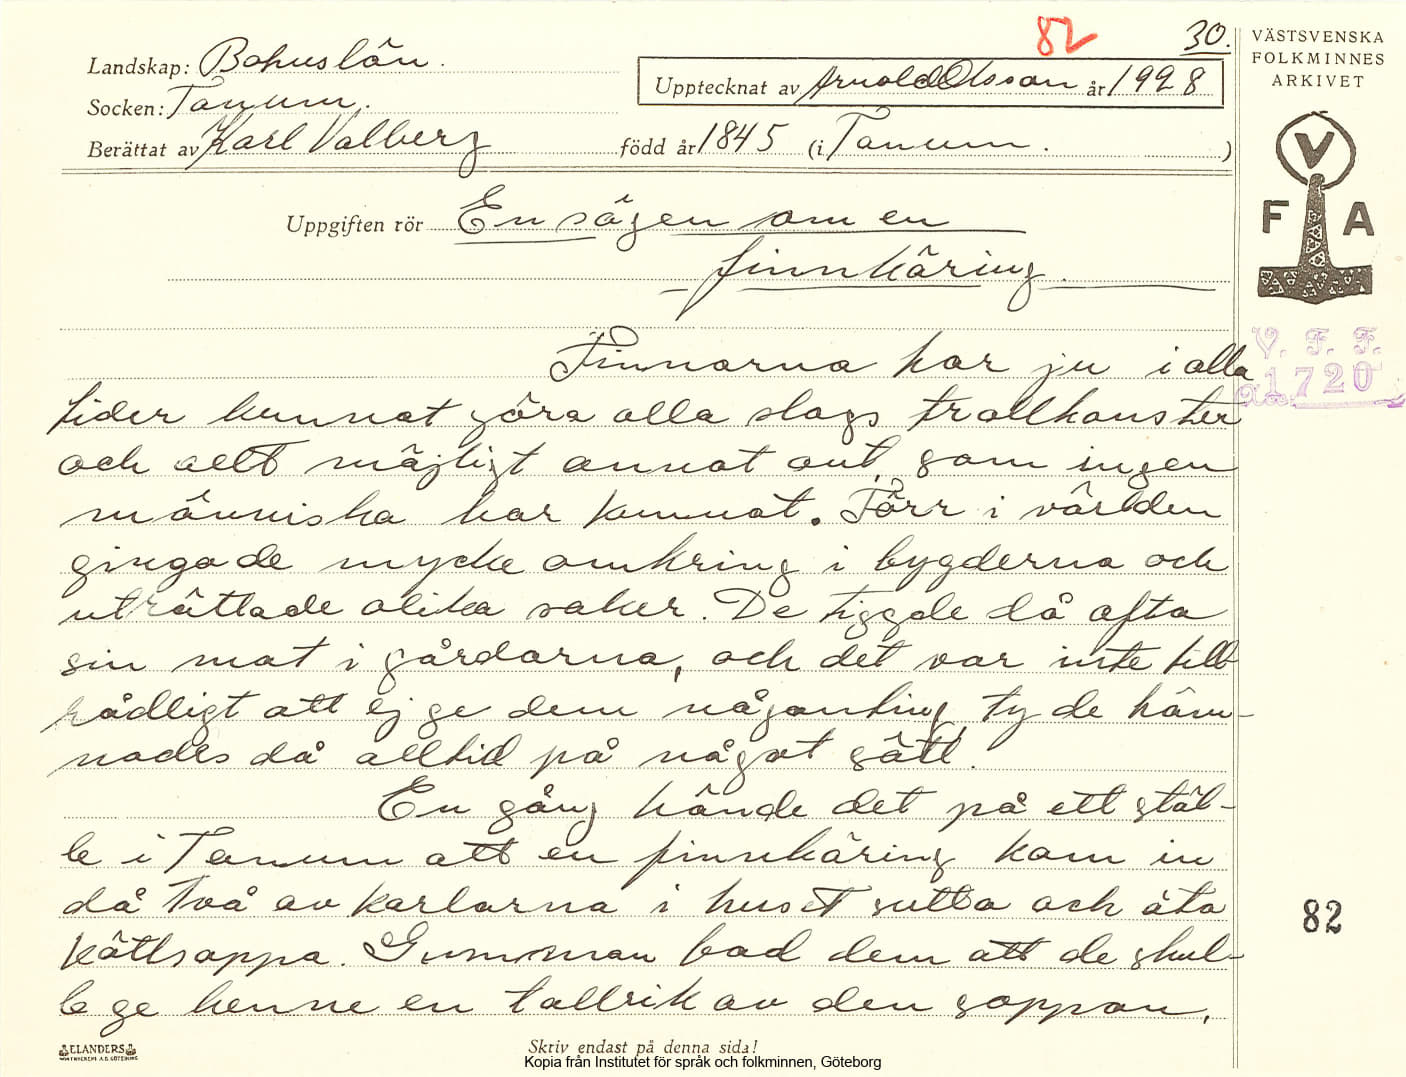 82
30.
VÄSTSVENSKA
FOLKMINNES
ARKIVET
Landskap: Bohuslän.
Upptecknat av Arnold Olsson år 1928
Socken: Tanum.
Berättat av Karl Valberg född år 1845 (i Tanum. )
V
F A
Uppgiften rör En sägen om en
finnkäring.
V. F. F.
1720
Finnarna har ju i alla
tider kunnat göra alla slags trollkonster
och allt möjligt annat ont, som ingen
människa har kunnat. Förr i världen
gingo de mycke omkring i bygderna och
uträttade olika saker. De tiggde då ofta
sin mat i gårdarna, och det var inte till-
rådligt att ej ge dem någonting, ty de häm-
nades då alltid på något sätt.
En gång hände det på ett stäl-
le i Tanum att en finnkäring kom in
då två av karlarna i huset sutto och äto
köttsoppa. Gumman bad dem att de skul-
le ge henne en tallrik av den soppan,
82
ELANDERS
Skriv endast på denna sida!
Kopia från Institutet för språk och folkminnen, Göteborg